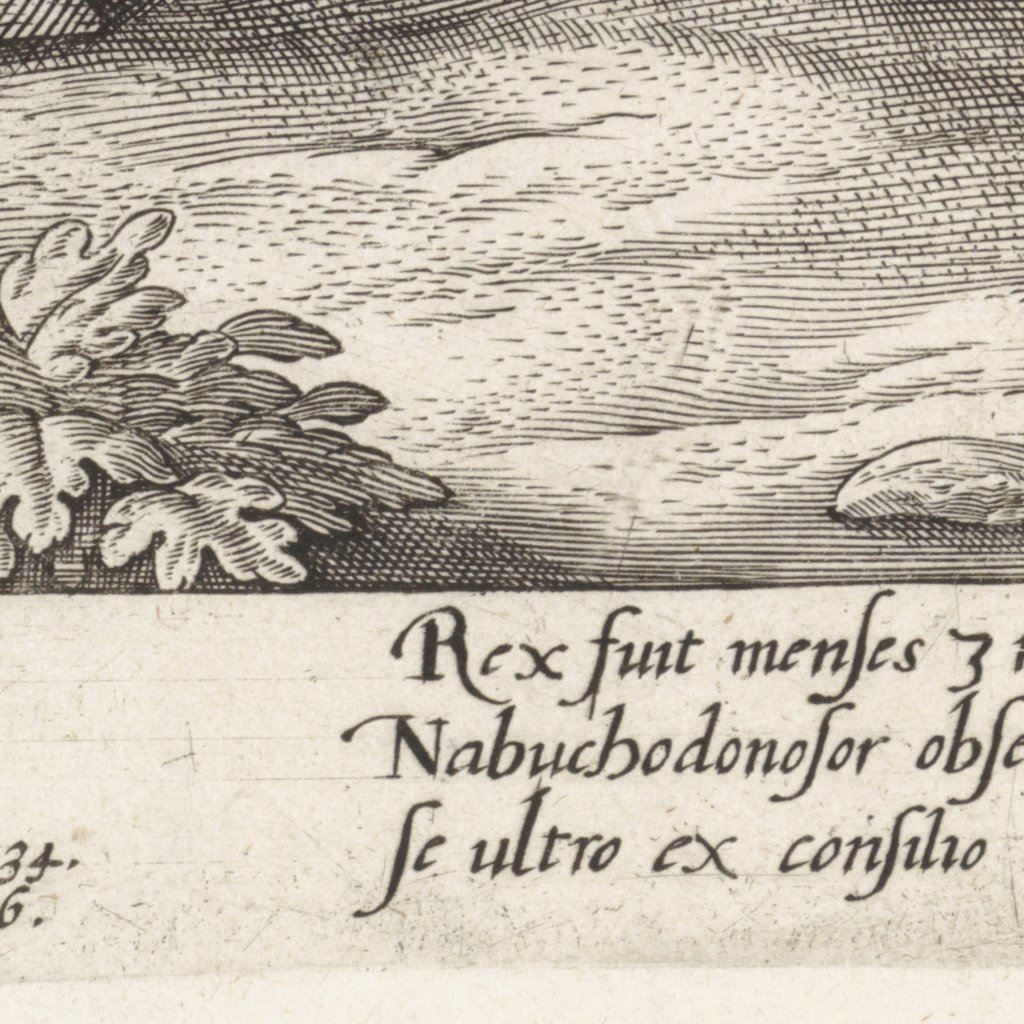 Rex fuit menſes 3
Nabuchodonoſor obſe
ſe ultro ex conſilio
34.
6.